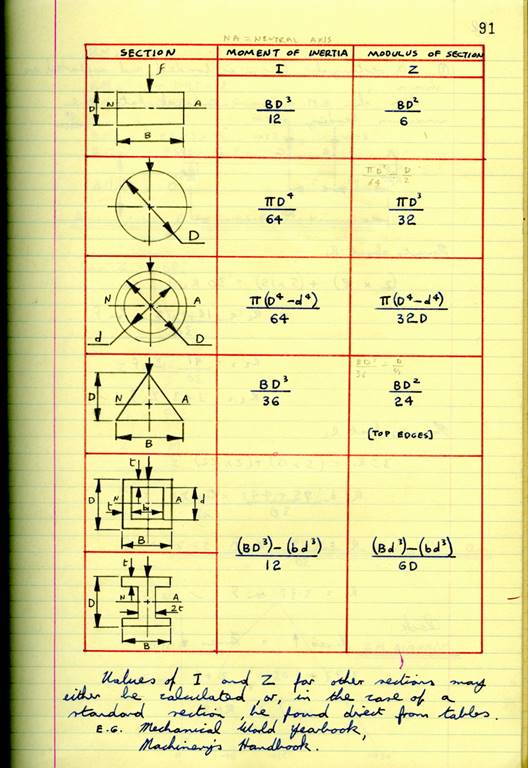 91
NA = NEUTRAL AXIS
SECTION MOMENT OF INERTIA MODULUS OF SECTION
I Z
f
D N A
B
BD³/12 BD²/6
D
πD⁴/64 πD³/32
πD⁴/64 ÷ D/2
N A
d D
π(D⁴-d⁴)/64 π(D⁴-d⁴)/32D
D N A
B
BD³/36 BD²/24
[TOP EDGES]
t
D N A d
t b
B
(BD³)-(bd³)/12 (Bd³)-(bd³)/6D
t
D N A
2t
B
Values of I and Z for other sections may
either be calculated, or, in the case of a
standard section, be found direct from tables.
E.G. Mechanical World Yearbook,
Machinery's Handbook.